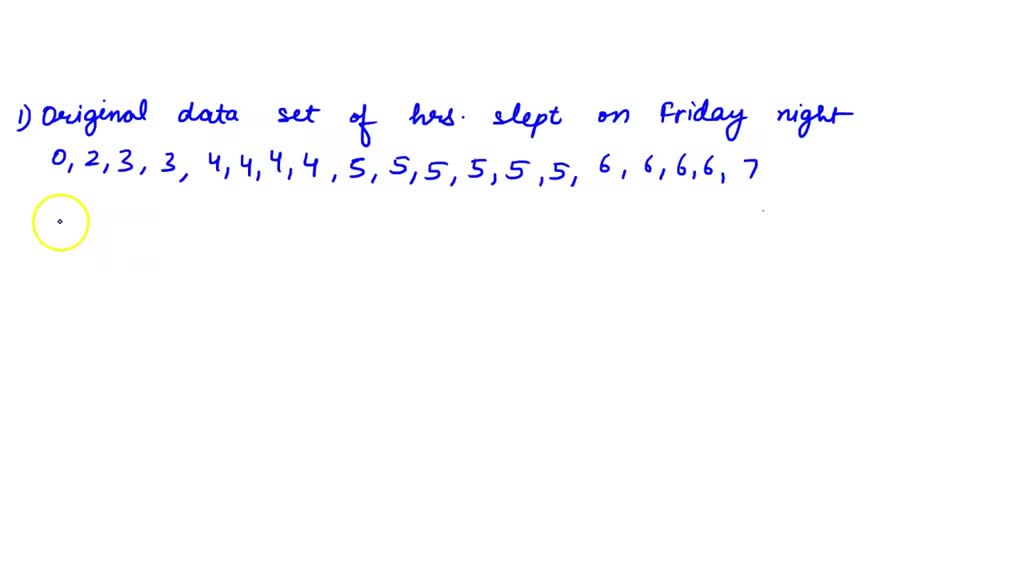 1) Original data set of hrs. slept on Friday night
0, 2, 3, 3, 4, 4, 4, 4, 5, 5, 5, 5, 5, 5, 6, 6, 6, 6, 7